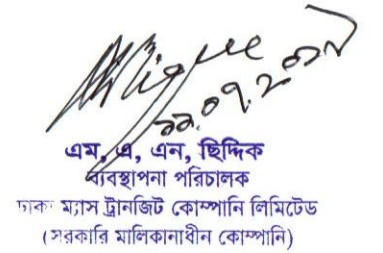 ১১.০৭.২০১৭
এম, এ, এন, ছিদ্দিক
ব্যবস্থাপনা পরিচালক
ঢাকা ম্যাস ট্রানজিট কোম্পানি লিমিটেড
(সরকারি মালিকানাধীন কোম্পানি)